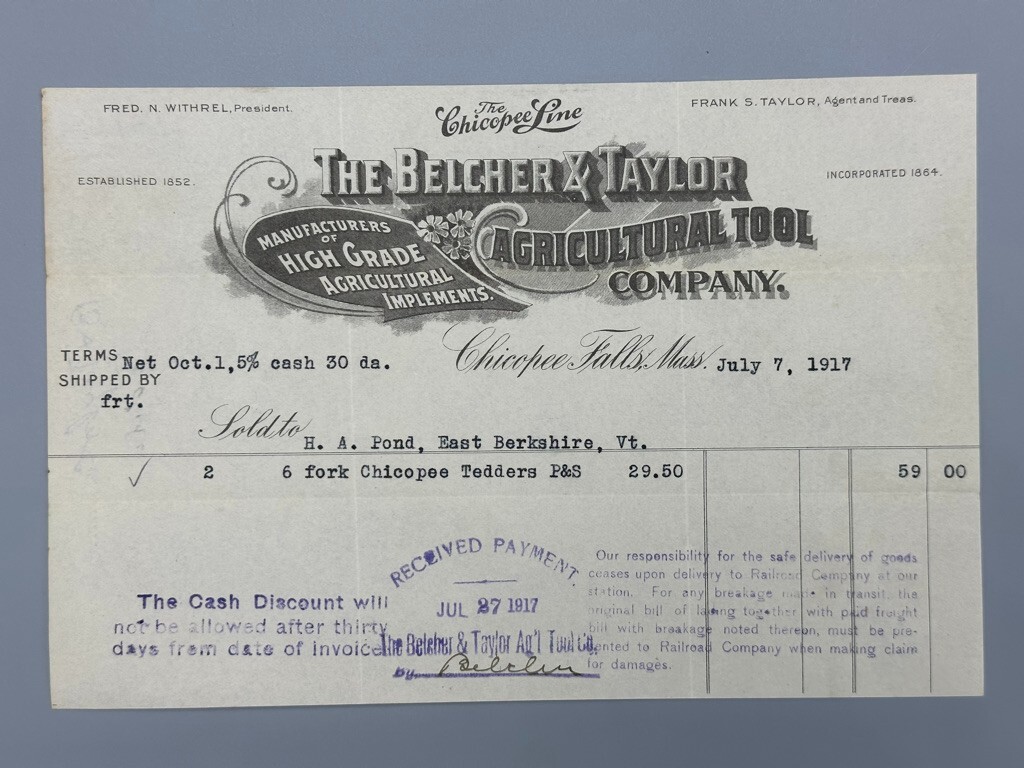 FRED. N. WITHREL, President.
The
Chicopee Line
FRANK S. TAYLOR, Agent and Treas.
THE BELCHER & TAYLOR
ESTABLISHED 1852.
INCORPORATED 1864.
AGRICULTURAL TOOL
COMPANY.
MANUFACTURERS
OF
HIGH GRADE
AGRICULTURAL
IMPLEMENTS.
TERMS Net Oct.1,5% cash 30 da.
Chicopee Falls, Mass. July 7, 1917
SHIPPED BY
frt.
Sold to H. A. Pond, East Berkshire, Vt.
2 6 fork Chicopee Tedders P&S 29.50 59 00
RECEIVED PAYMENT.
JUL 27 1917
The Belcher & Taylor Ag'l Tool Co.
by Belcher
The Cash Discount will
not be allowed after thirty
days from date of invoice
Our responsibility for the safe delivery of goods
ceases upon delivery to Railroad Company at our
station. For any breakage made in transit, the
original bill of lading together with paid freight
bill with breakage noted thereon, must be pre-
sented to Railroad Company when making claim
for damages.